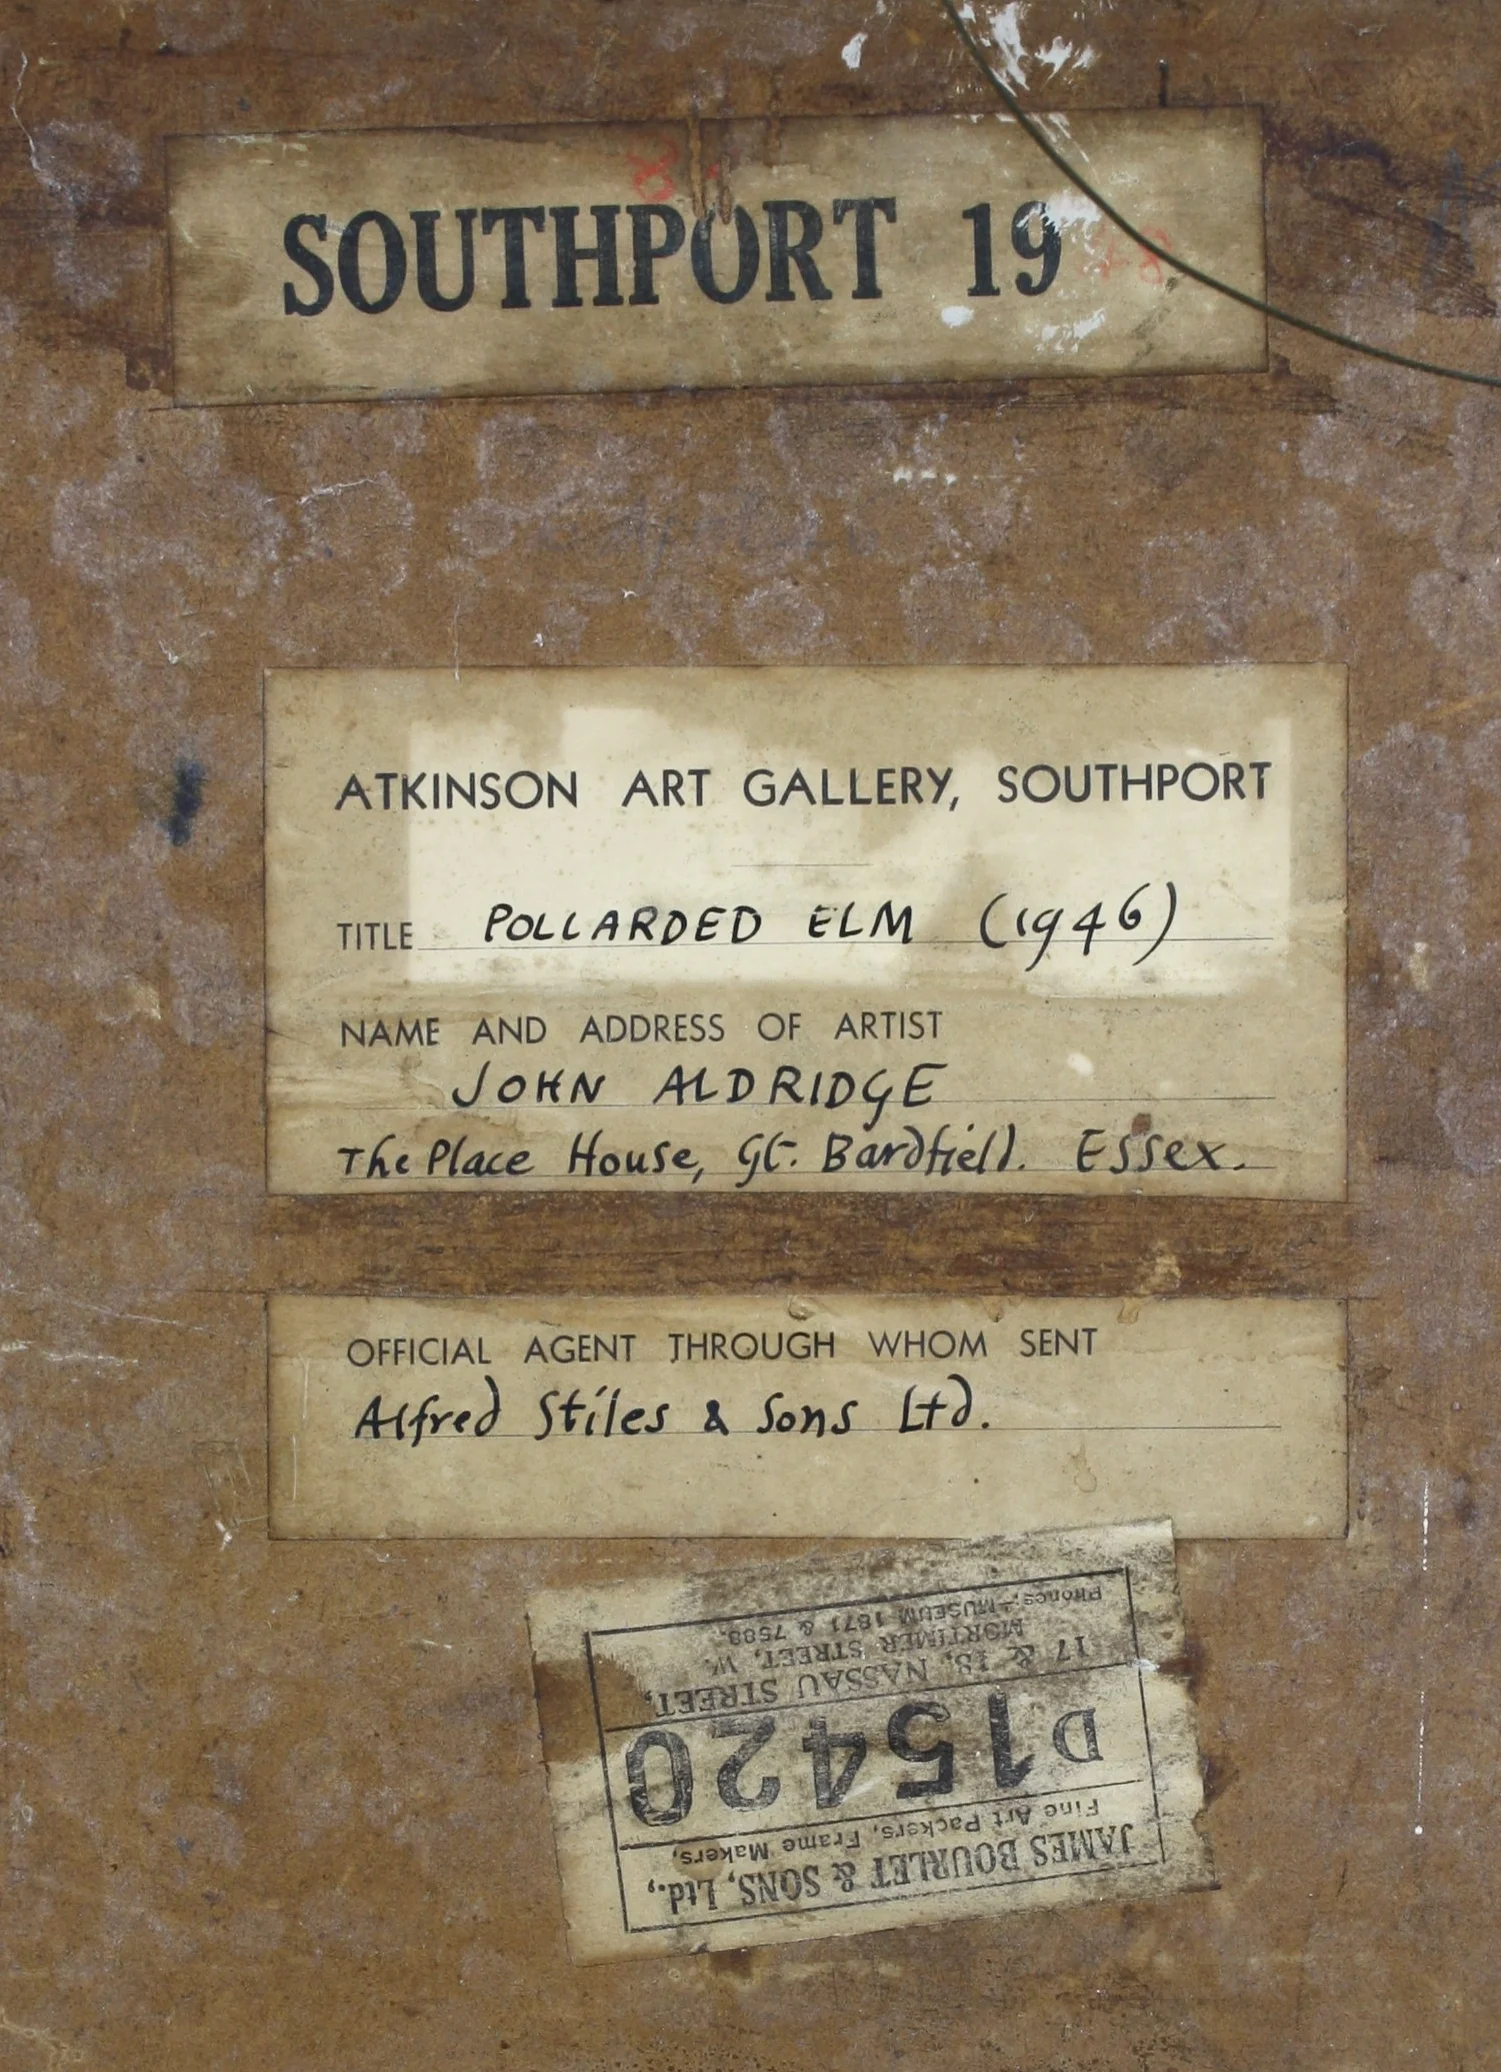 SOUTHPORT 19 48
ATKINSON ART GALLERY, SOUTHPORT
TITLE POLLARDED ELM (1946)
NAME AND ADDRESS OF ARTIST
JOHN ALDRIDGE
The Place House, Gt. Bardfield. Essex.
OFFICIAL AGENT THROUGH WHOM SENT
Alfred Stiles & Sons Ltd.
JAMES BOURLET & SONS, Ltd.,
Fine Art Packers, Frame Makers,
D15420
17 & 18, NASSAU STREET,
MORTIMER STREET, W.
Phones:—MUSEUM 1871 & 7588.